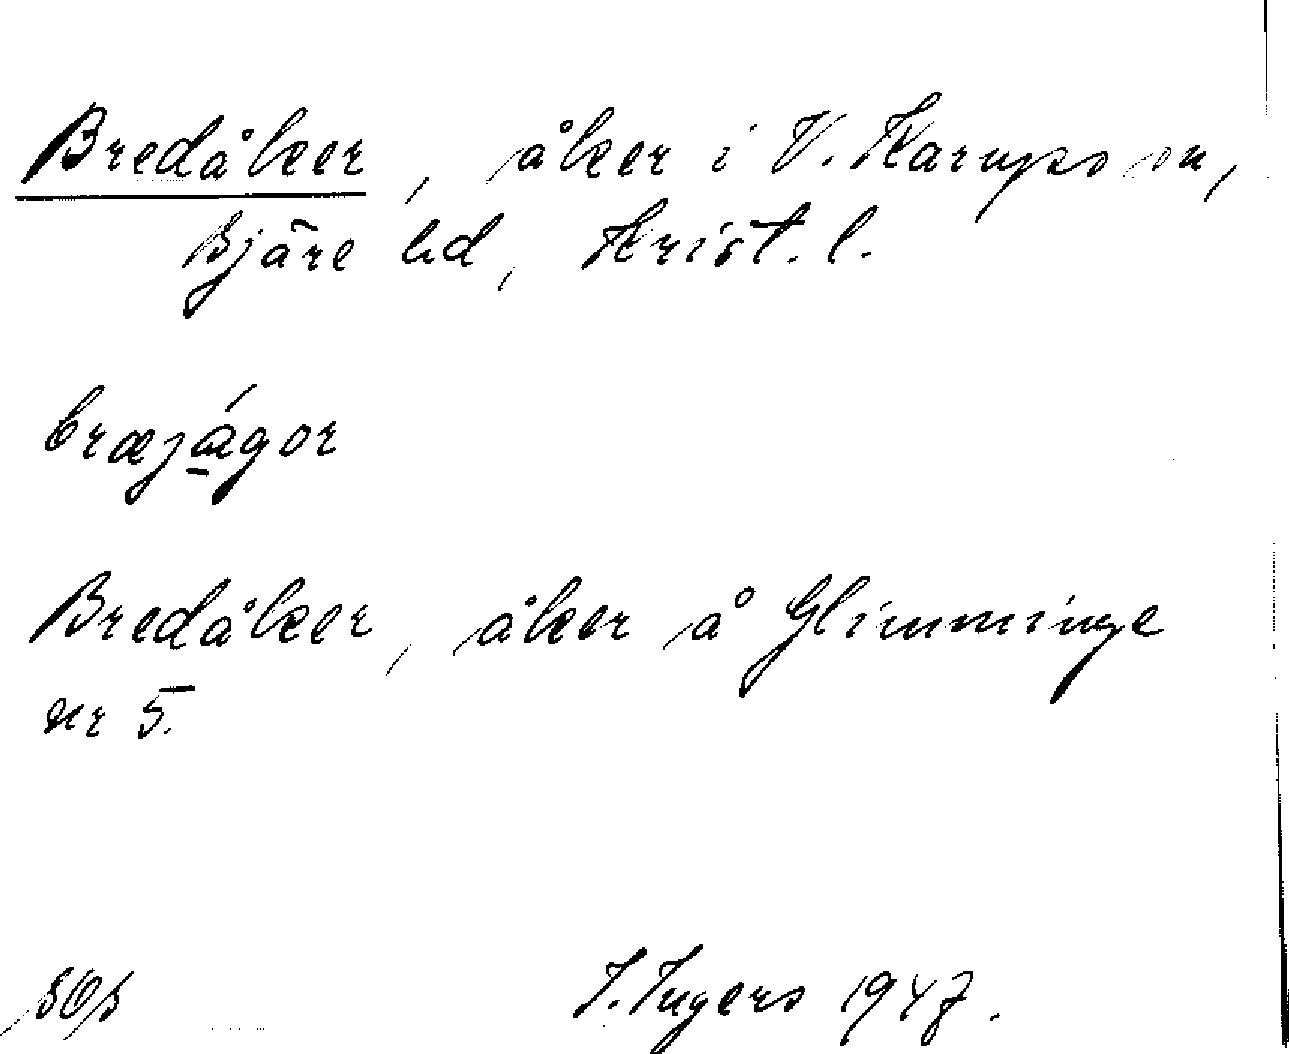 Bredåker, åker i V. Karups sn,
Bjäre hd, Krist. l.
bræjågor
Bredåker, åker å Glimminge
nr 5.
I. Ingers 1947.